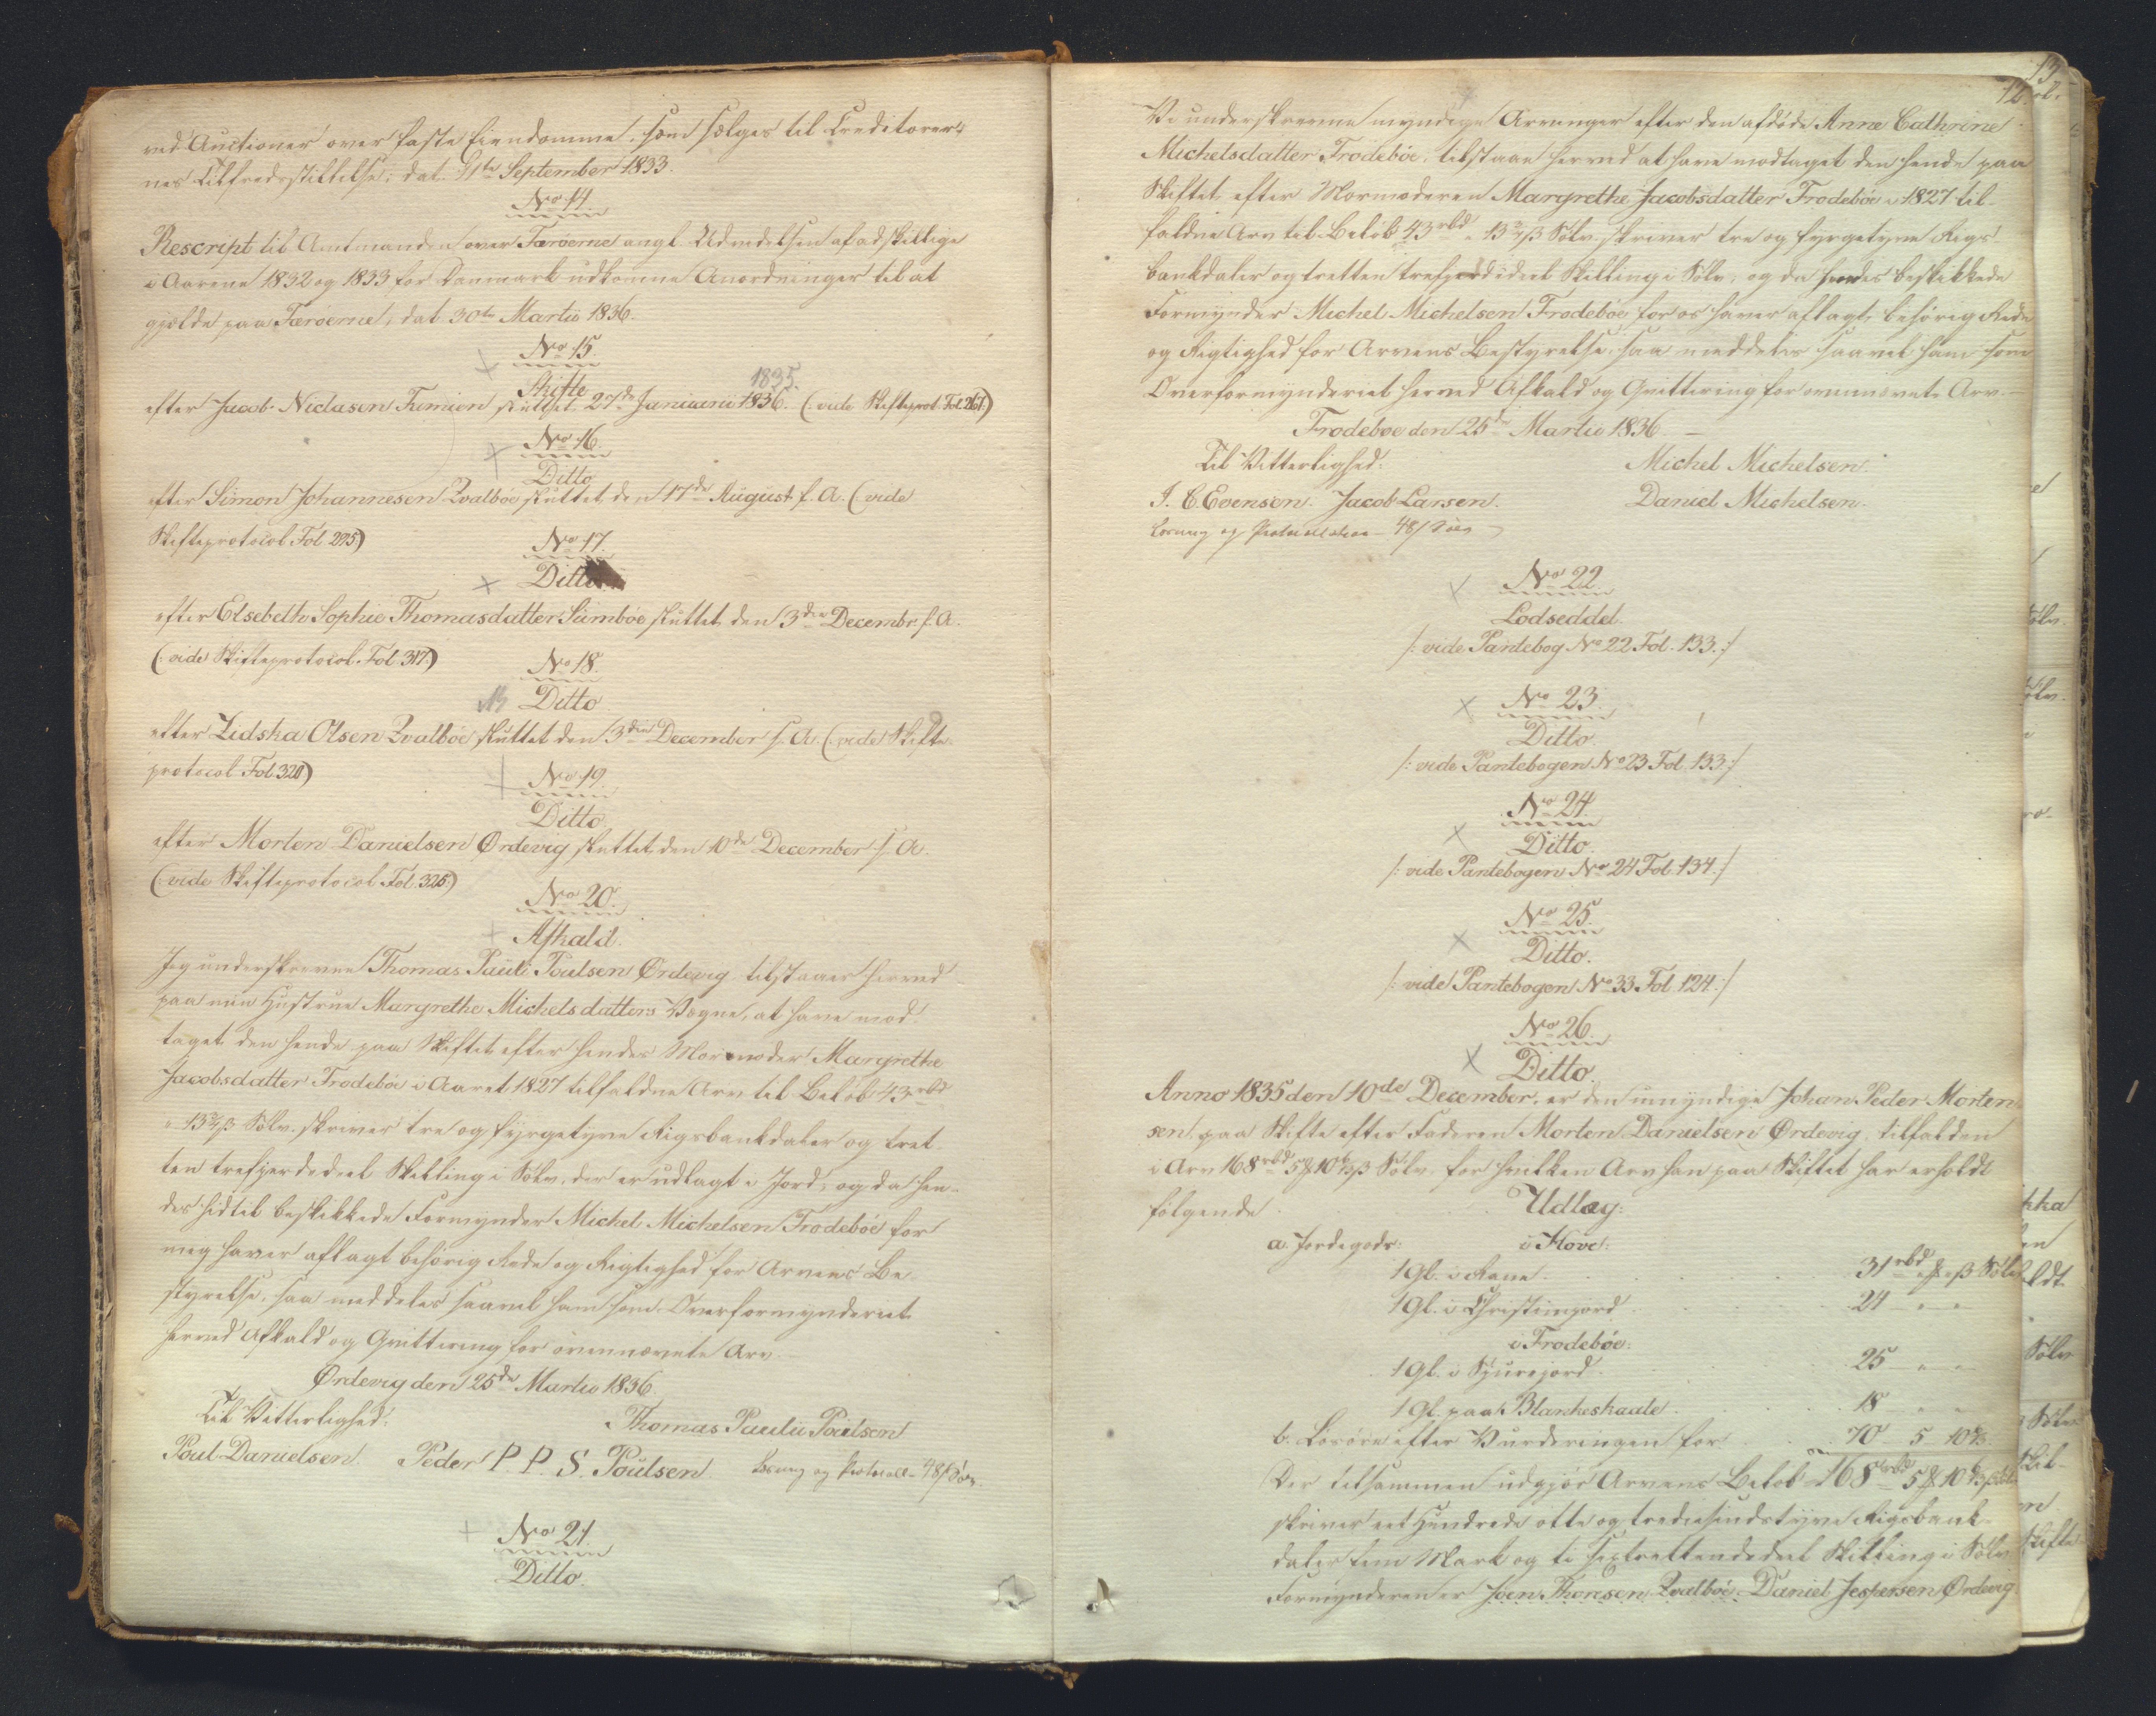 ved Auctioner over faste Eiendomme, som sælges til Creditorer-
nes Tilfredsstillelse, dat. 11te September 1833.
No 14.
Rescript til Amtmanden over Færöerne angl. Udvidelsen af adskillige
i Aarene 1832 og 1833 for Danmark udkomne Anordninger til at
gjelde paa Færöerne, dat 30te Martii 1836.
No 15.
Skifte
1835.
efter Jacob Niclasen Famien sluttet 27de Januarii 1836. (:vide Skifteprot. Fol. 267:)
No 16.
Ditto
efter Simon Johannesen Qvalböe sluttet den 17de August s. A. (:vide
Skifteprotocol Fol 295:)
No 17.
Ditto
efter Elsebeth Sophie Thomasdatter Sumböe sluttet den 3die Decembr. s. A.
(:vide Skifteprotocol. Fol. 317:)
No 18.
Ditto
efter Zidska Olsen Qvalböe sluttet den 3die December s. A. (:vide Skifte-
protocol Fol 320:)
No 19.
Ditto.
efter Morten Danielsen Ördevig sluttet den 10de December s. A.
(:vide Skifteprotocol Fol. 325:)
No 20.
Afkald.
Jeg underskrevne Thomas Pauli Poulsen Ördevig tilstaaer herved
paa min Hustrue Margrethe Michelsdatters Vegne, at have mod-
taget den hende paa Skiftet efter hendes Mormoder Margrethe
Jacobsdatter Frodeböe i Aaret 1827 tilfaldne Arv til Belöb 43 rbd
" 13 3/4 ß Sölv, skriver tre og fyrgetyve Rigsbankdaler og tret-
ten trefjerdedeel Skilling i Sölv, der er udlagt i Jord, og da hen-
des hidtil beskikkede Formynder Michel Michelsen Frodeböe for
mig haver aflagt behörig Rede og Rigtighed for Arvens Be-
styrelse, saa meddeles saavel ham som Overformynderiet
herved Afkald og Qvittering for ovennævnte Arv.
Ördevig den 25de Martii 1836.
Til Vitterlighed:
Thomas Paulii Poulsen
Poul Danielsen. Peder P. P. S. Poulsen. Læsning og Protocoll - 48 ß Sölv.
No 21.
Ditto.
13
12.
Vi underskrevne myndige Arvinger efter den afdöde Anne Cathrine
Michelsdatter Frodeböe, tilstaae herved at have modtaget den hende paa
Skiftet efter Mormoderen Margrethe Jacobsdatter Frodeböe i 1827 til-
faldne Arv til Belöb 43 rbd " 13 3/4 ß Sölv, skriver tre og fyrgetyve Rigs-
bankdaler og tretten trefjerdedeel Skilling i Sölv, og da hendes beskikkede
Formynder Michel Michelsen Frodeböe for os haver aflagt behörig Rede
og Rigtighed for Arvens Bestyrelse, saa meddeles saavel ham som
Overformynderiet herved Afkald og Qvittering for ovennævnte Arv.
Frodeböe den 25de Martii 1836.
Til Vitterlighed:
Michel Michelsen.
J. C. Evensen. Jacob Larsen.
Daniel Michelsen.
Læsning og Protocollation - 48 ß Sölv
No 22.
Lodseddel.
/: vide Pantebog No 22 Fol. 133. :/
No 23.
Ditto.
/: vide Pantebogen No 23 Fol. 133 :/
No 24.
Ditto.
/: vide Pantebogen No 24 Fol. 134. :/
No 25.
Ditto.
/: vide Pantebogen No 33 Fol. 124. :/
No 26.
Ditto.
Anno 1835 den 10de December, er den umyndige Johan Peder Morten-
sen paa Skifte efter Faderen Morten Danielsen Ördevig tilfalden
i Arv 168 rbd 5 ℳ 10 6/13 ß Sölv, for hvilken Arv han paa Skiftet har erholdt
fölgende Udlæg:
a. Jordegods: i Hove:
1 Gl. i Rane 31 rbd " ℳ " ß Sölv
1 Gl. i Christinejord 24 " "
i Frodeböe:
1 Gl. i Sjurejord 25 " "
1 Gl. paa Blankeskaale 18 " "
b. Lösöre efter Vurderingen for 70 5 10 6/13
Der tilsammen udgjör Arvens Belöb 168 rbd 5 ℳ 10 6/13 ß Sölv
skriver eet Hundrede otte og tredsindstyve Rigsbank-
daler fem Mark og ti sextrettendedeel Skilling i Sölv
Formynderen er Joen Thomsen Qvalböe. Daniel Jespersen Ördevig